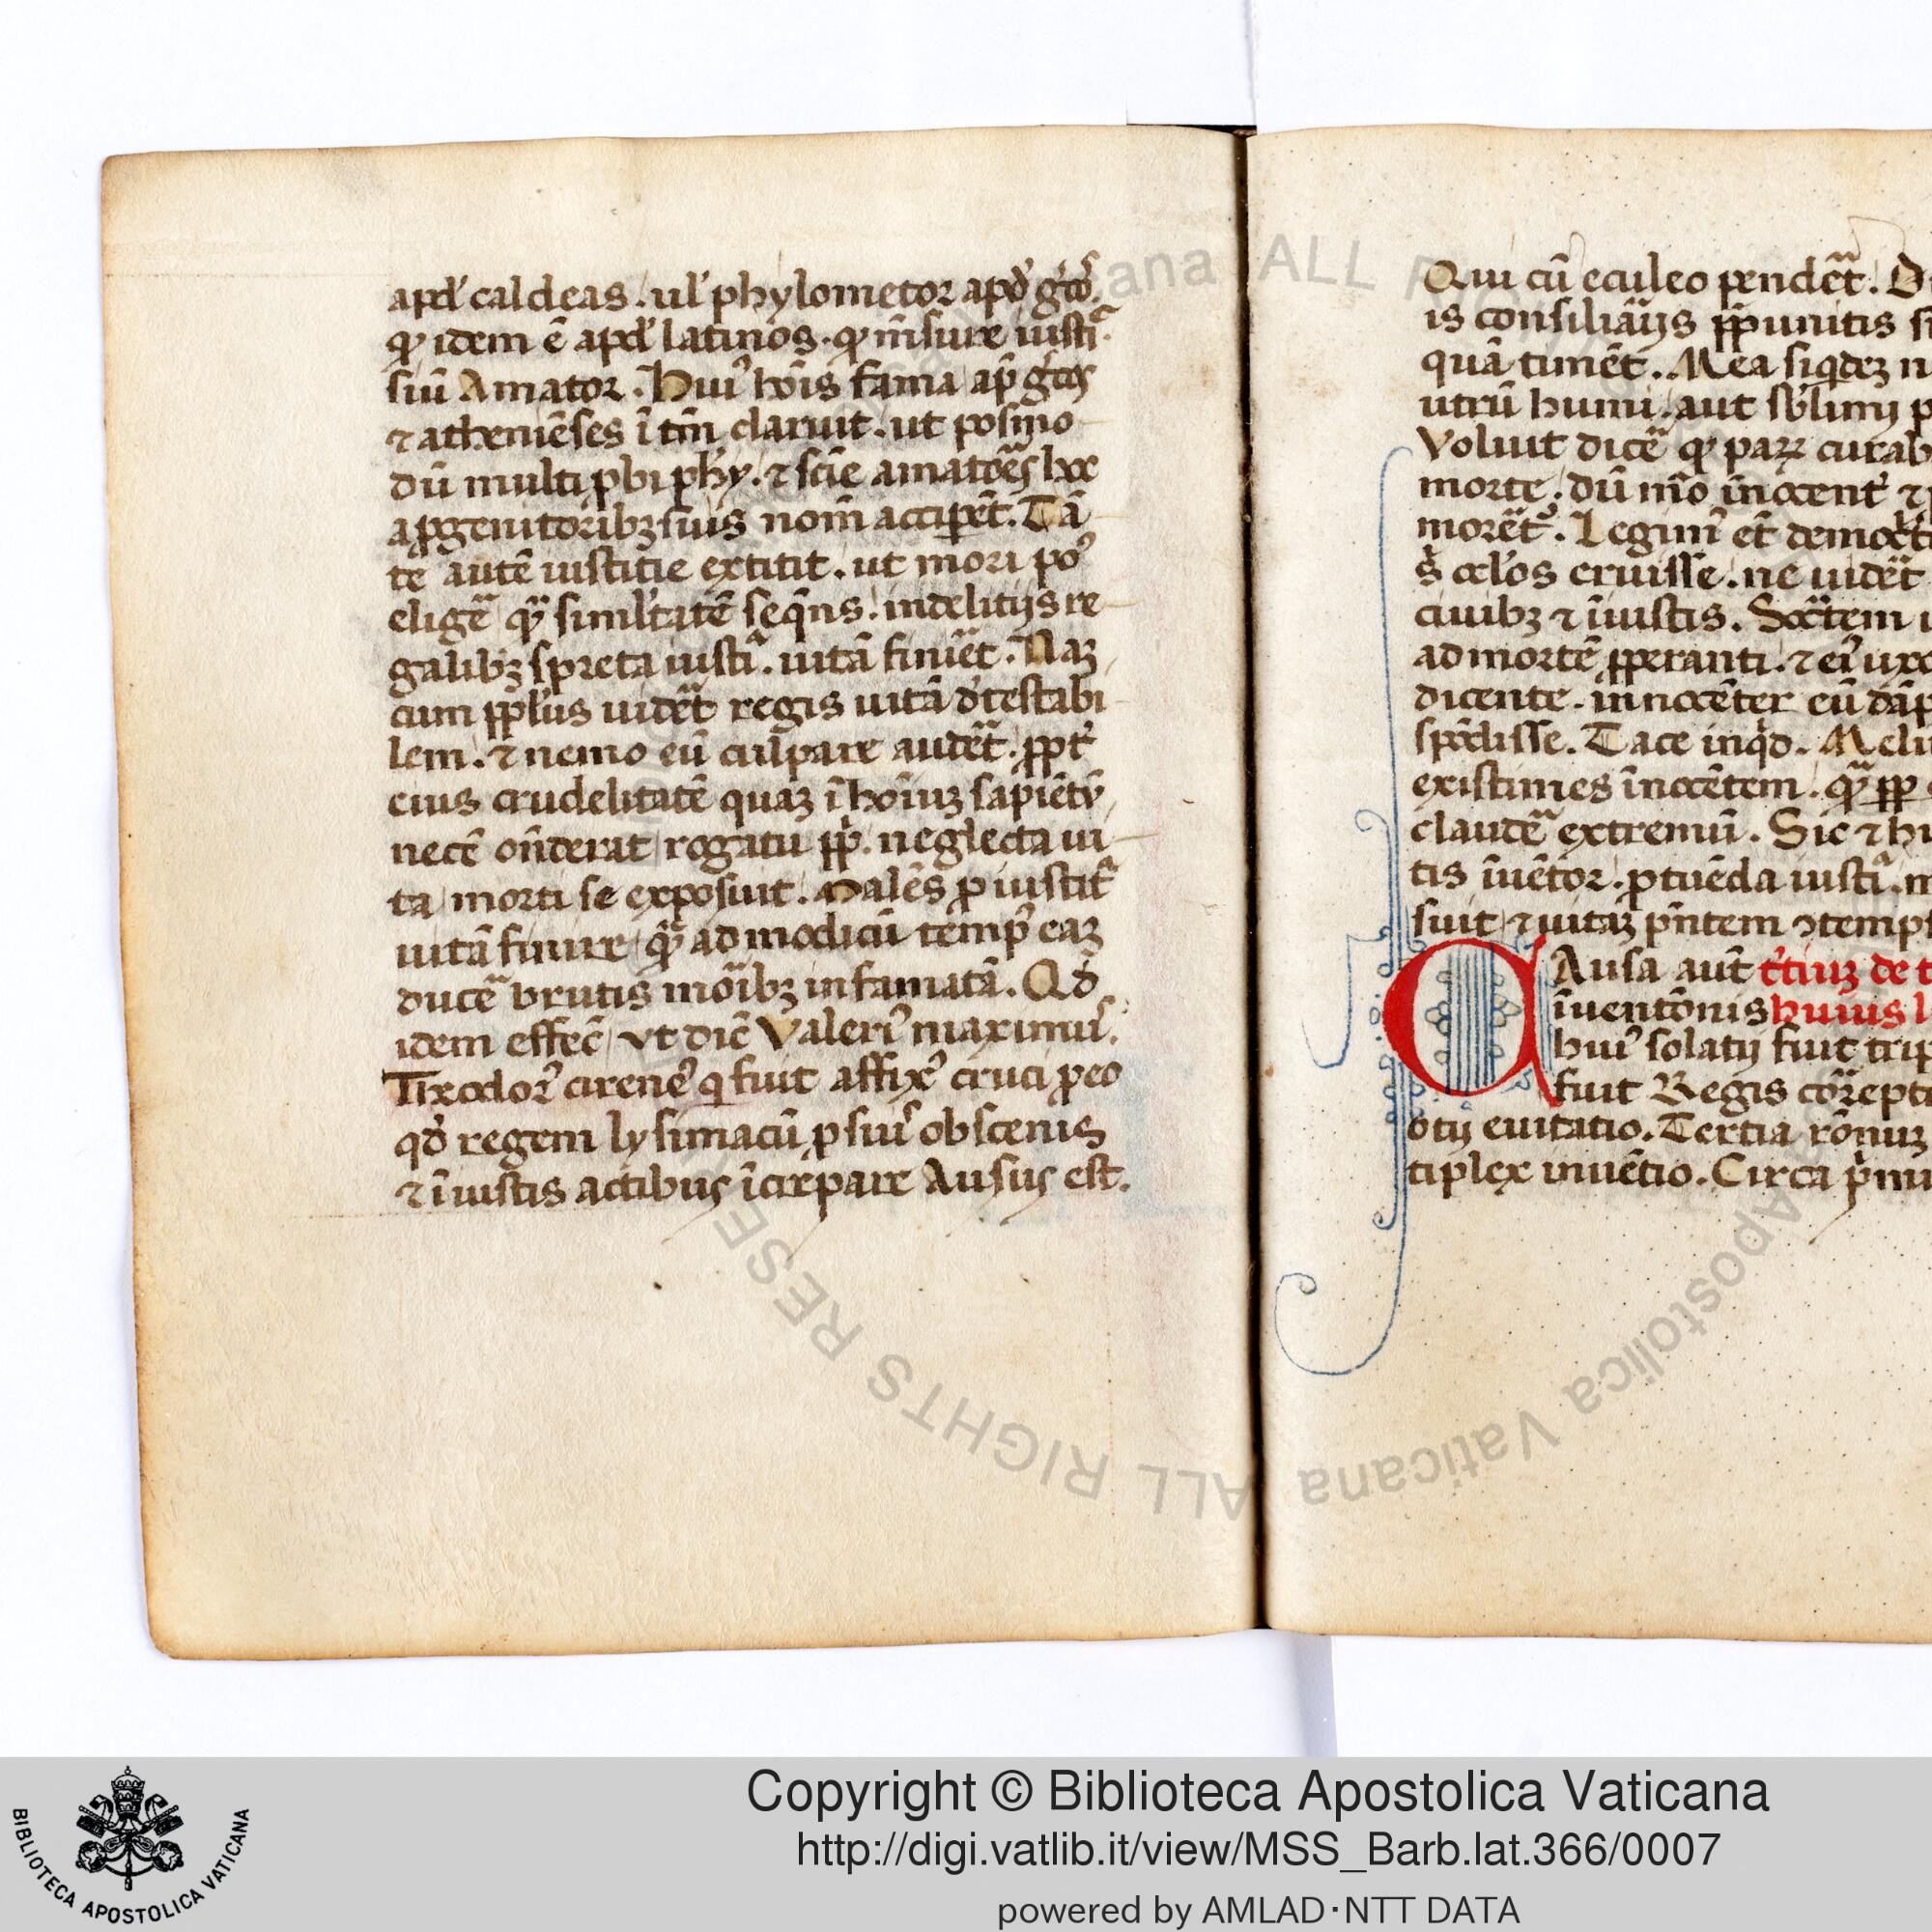 apd' caldeas. ul' phylometor apd' g̃cos̃.
ꝙ idem ē apd' latinos. ꝙ m̃sure iusti
siũ Amator. Hui' hoĩs fama ap̃ g̃cos
⁊ athenieñses ĩ tm̃ claruit. ut posmo
dũ multi pbi phy. ⁊ scĩe amatoẽs hoc
a ꝓgenitoribꝫ suis nom̃ acciꝑet̃. Tã
te autẽ iustitie extitit. ut mori po'
eligẽ qꝫ simil'tatẽ seqñs. in delitijs re
galibꝫ spreta iusti. uitã finiẽt. Naꝫ
cum ppl'us uidẽt regis uitã d'testabi
lem. ⁊ nemo eũ culpare audẽt. ꝓpt'
eius crudelitatẽ quaꝫ ĩ hoĩuꝫ sapiẽtũ
necẽ oñderat rogatu ppl'i. neglecta ui
ta morti se exposuit. Malẽs ꝓ iustit
uitã finire qꝫ ad modicũ temp' eaꝫ
ducẽ brutis moĩbꝫ infamatã. Qd'
idem effec̃ ut dic̃ Valeri' maximus.
Theodor' cirene' q fuit affix' cruci ꝓ eo
qd' regem lysimacũ ꝓ siu' obscenis
⁊ ĩiustis actibus ĩcrepare Ausus est.
Qui cũ eculeo pendẽt. D
is consiliãijs
quã timẽt. Mea siqdeꝫ n
utrũ humi. aut sb'limi p
Voluit dicẽ ꝙ paꝝ curab
morte. dũ mõ innocent' ⁊
morẽt'. Legim' et̃ democ't
oc'los eruisse. ne uidẽt
ciuibꝫ ⁊ ĩiustis. Soc̃tem
ad mortẽ ꝓperanti. ⁊ ei' uxo
dicente. innocẽter eũ dãp
spõdisse. Tace inqd. Meli
existimes ĩnocẽtem. qꝫ ꝓp
claudẽ extremũ. Sic ⁊ hu
tis ĩuẽtor. ꝓ tuẽda iusti. m
suit ⁊ uitaꝫ pñtem ↄtemps
CAusa aut̃ t'tiuꝫ de t
ĩuentõnis huius l
hui' solatij fuit trip
fuit Regis corrept
otij euitatio. Tertia rõnuꝫ
tiplex inuẽtio. Circa p'mu
Copyright © Biblioteca Apostolica Vaticana
http://digi.vatlib.it/view/MSS_Barb.lat.366/0007
powered by AMLAD·NTT DATA
BIBLIOTECA APOSTOLICA VATICANA